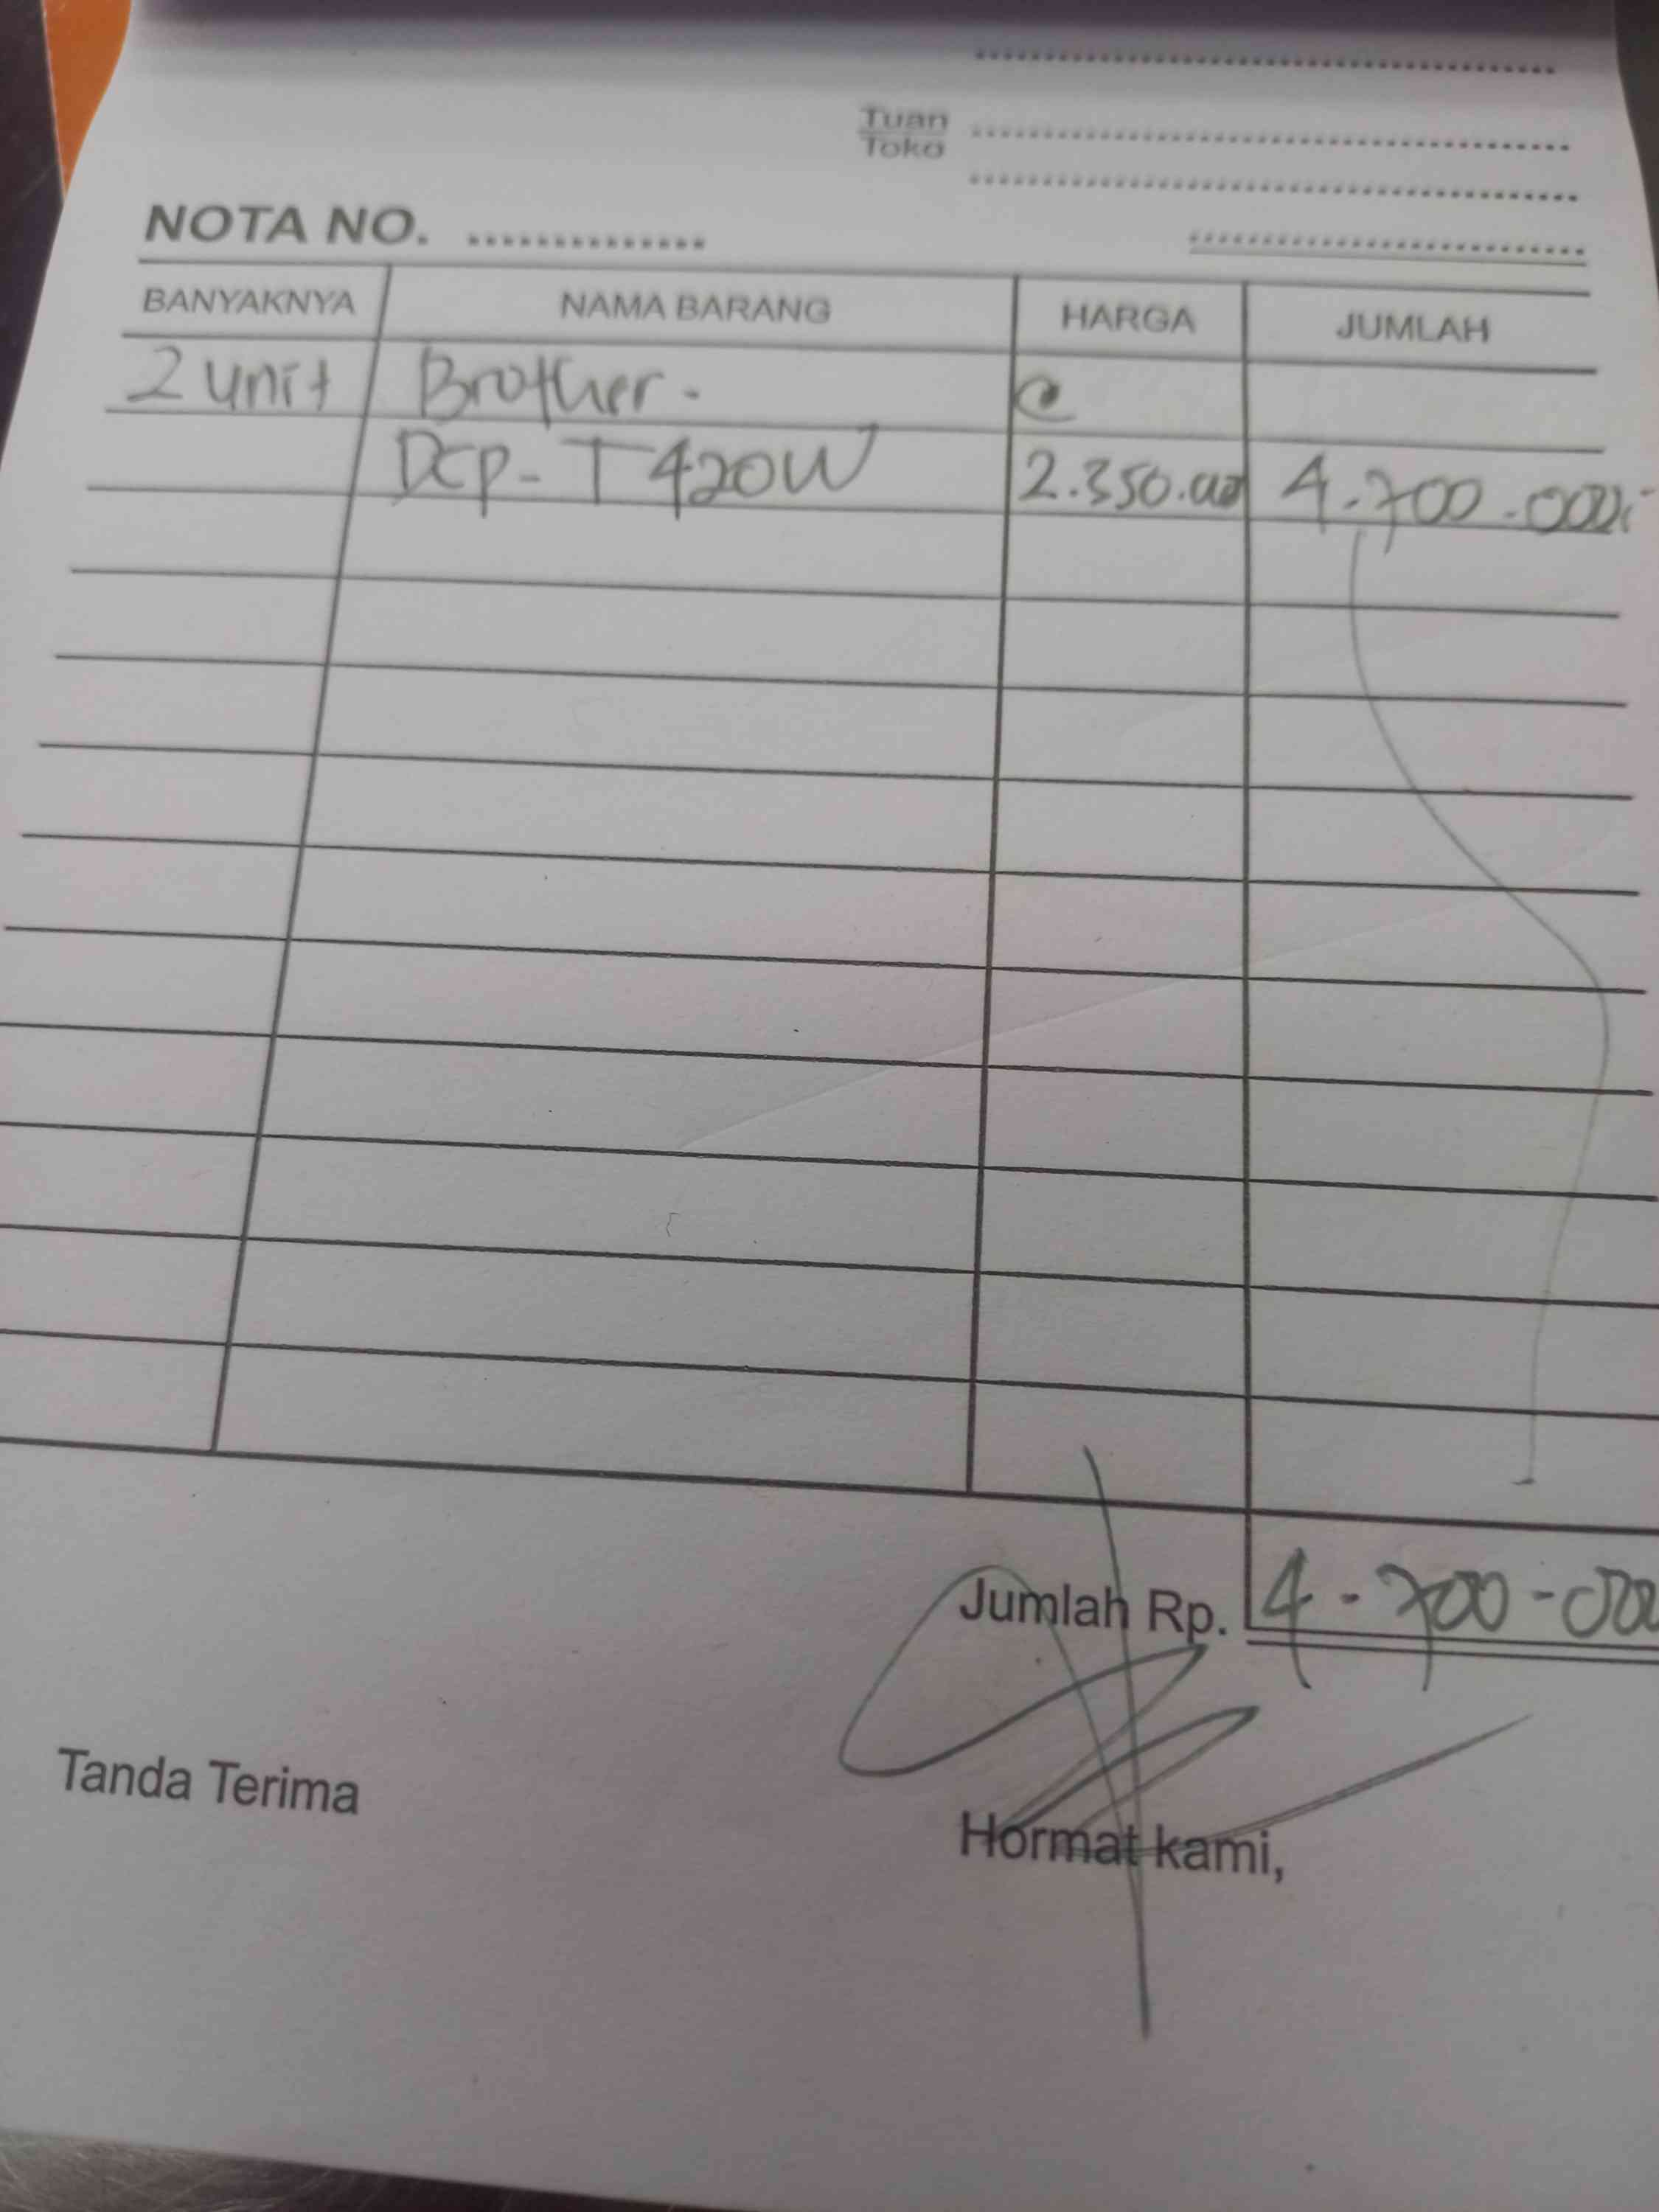 Tuan
Toko
NOTA NO. ..............
BANYAKNYA NAMA BARANG HARGA JUMLAH
2 unit Brother - @
DCP - T420W 2.350.000 4.700.000,-
Jumlah Rp. 4.700.000
Tanda Terima
Hormat kami,